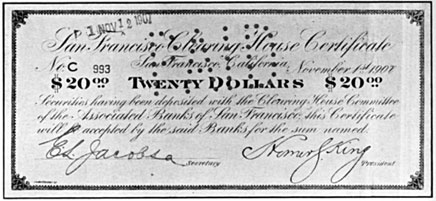 1 NOV 12 1907
San Francisco Clearing House Certificate
No. C 993 San Francisco, California, November 1st 1907
$20.00 TWENTY DOLLARS $20.00
Securities having been deposited with the Clearing House Committee
of the Associated Banks of San Francisco, this Certificate
will be accepted by the said Banks for the sum named.
Homer S King
Secretary President